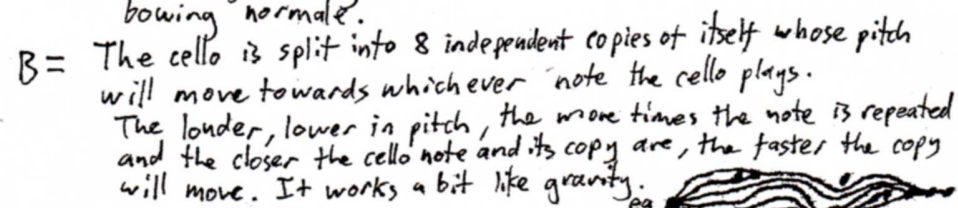 bowing normale.
B= The cello is split into 8 independent copies of itself whose pitch
will move towards whichever note the cello plays.
The louder, lower in pitch, the more times the note is repeated
and the closer the cello note and its copy are, the faster the copy
will move. It works a bit like gravity.
eg